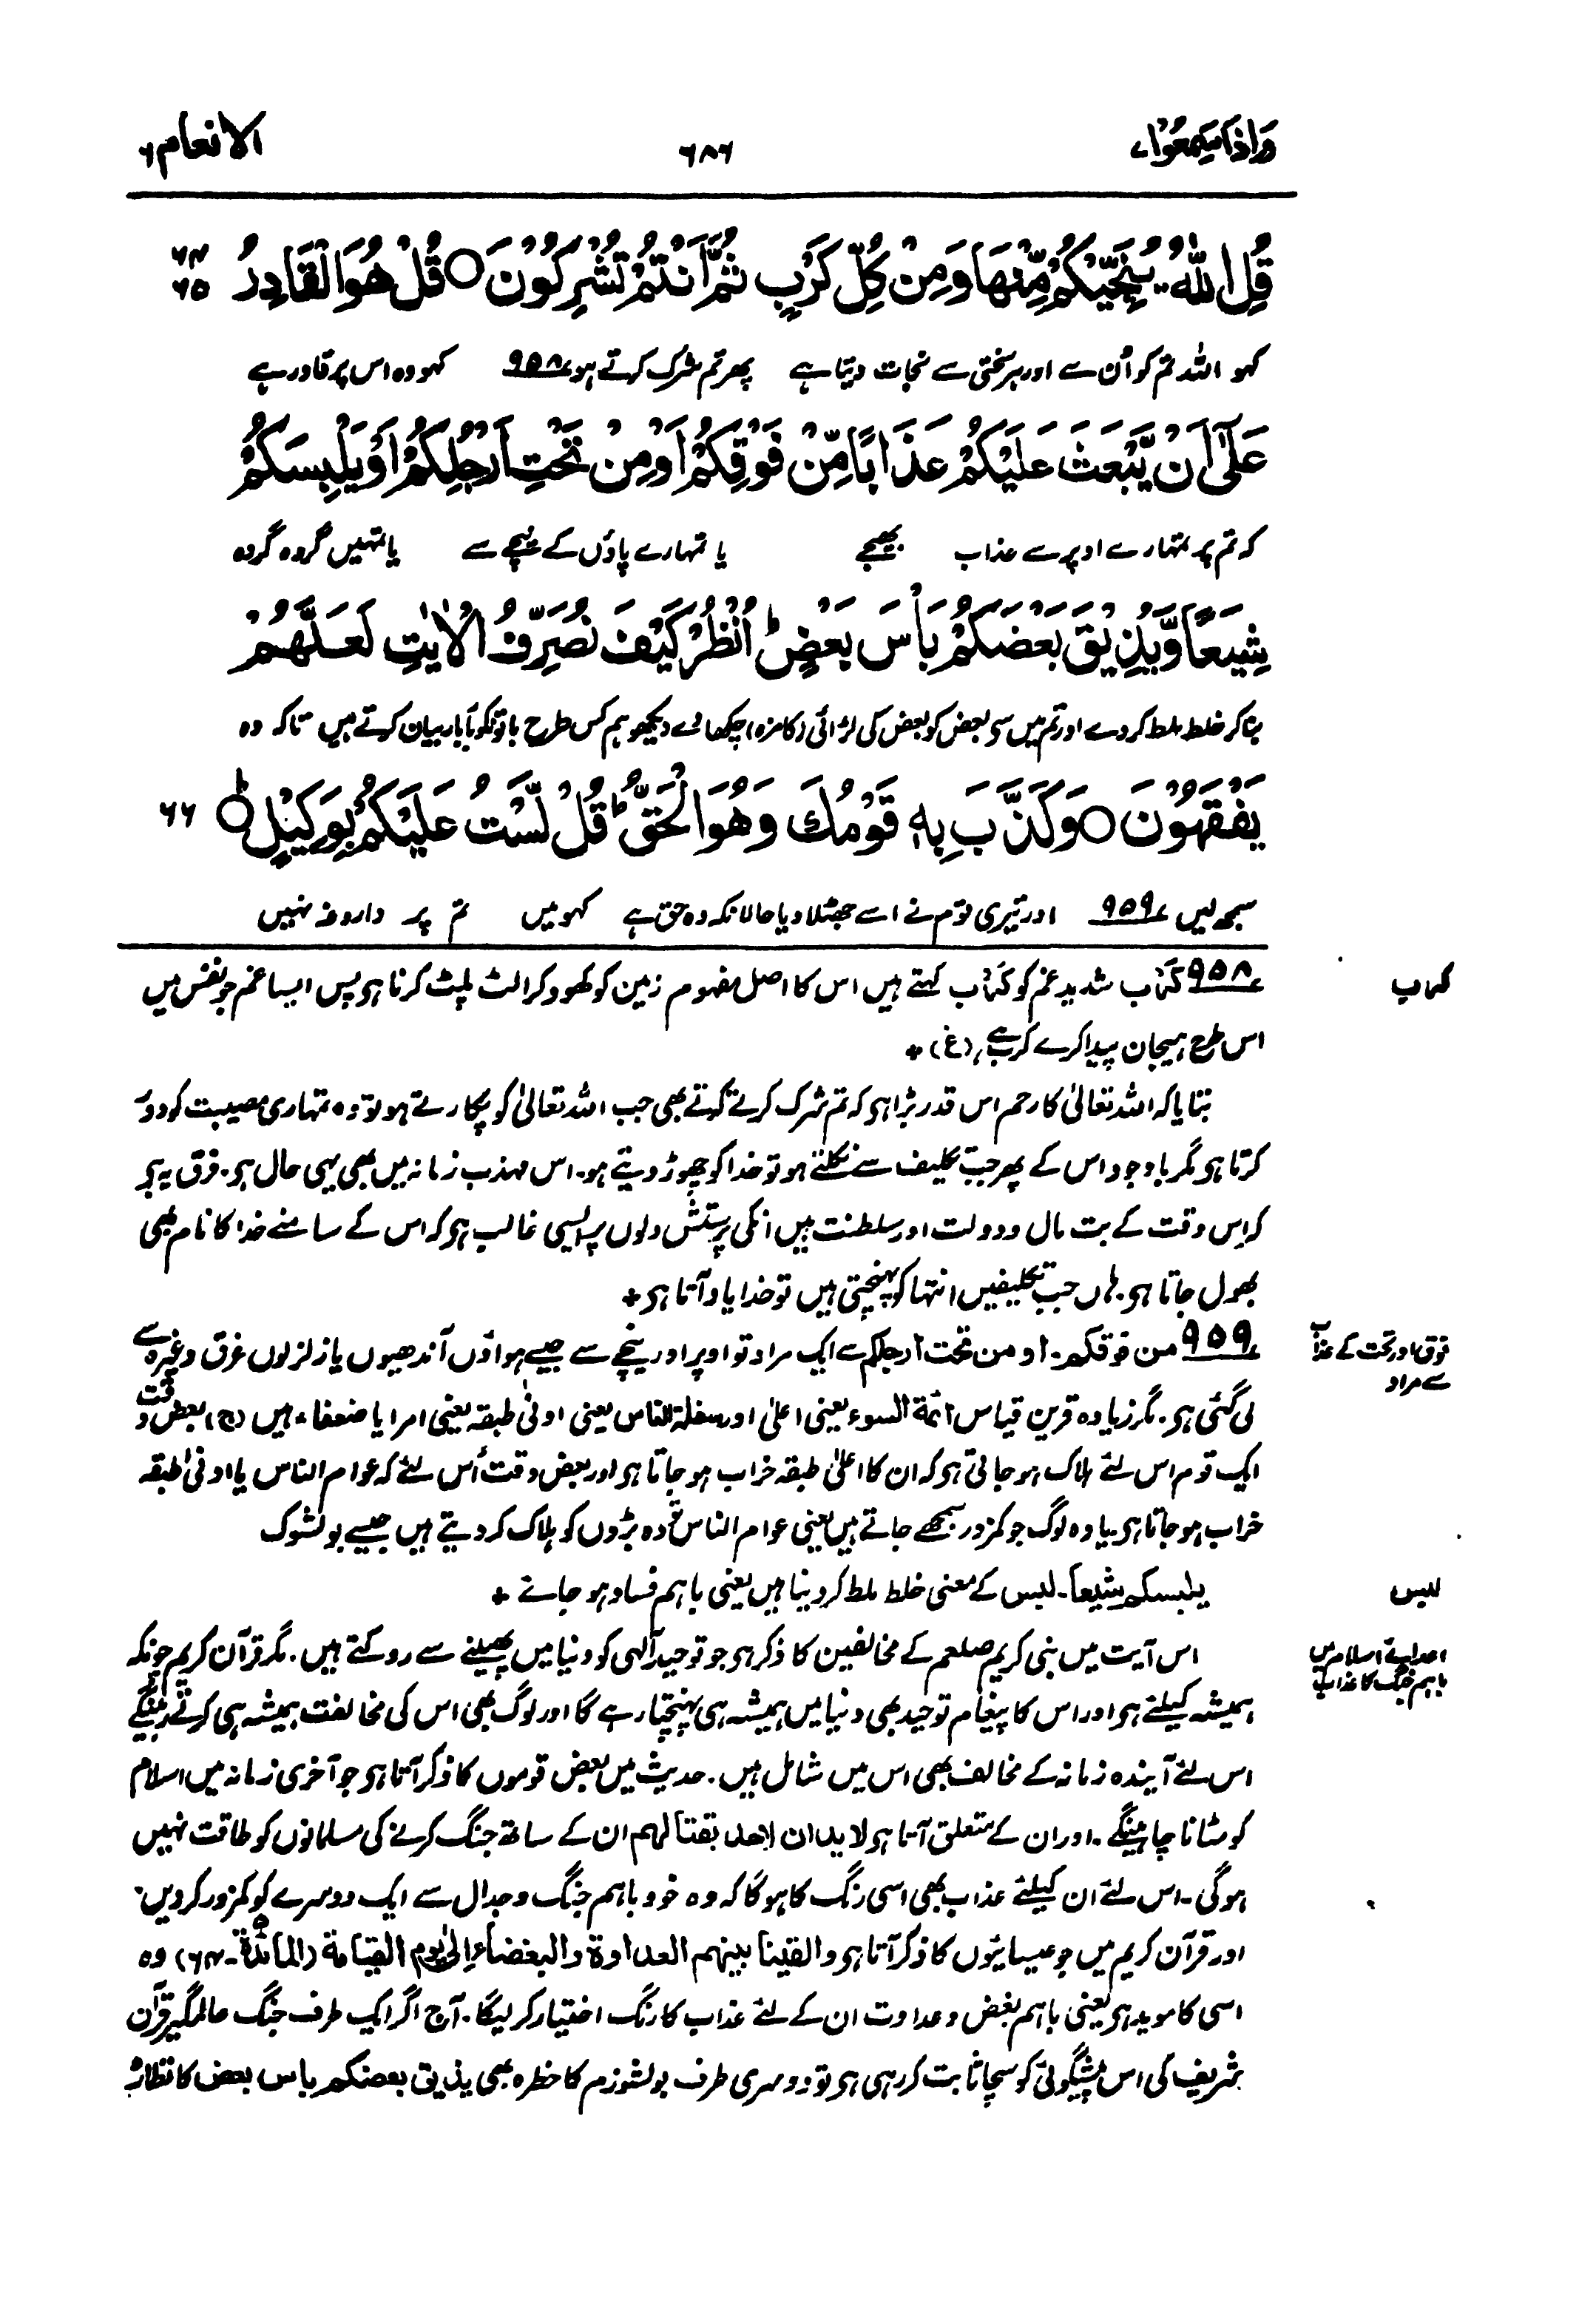 وَاِذَا سَمِعُوْا ٧
٦٨٦
الانعام ٦
قُلِ اللّٰهُ يُنَجِّيْكُمْ مِّنْهَا وَمِنْ كُلِّ كَرْبٍ ثُمَّ اَنْتُمْ تُشْرِكُوْنَ ○ قُلْ هُوَ الْقَادِرُ ٦٤ ٦٥
کہو اللہ تم کو اُن سے اور ہر سختی سے نجات دیتا ہے پھر تم شرک کرتے ہو ٩٥٨ کہو وہ اس پر قادر ہے
عَلٰٓى اَنْ يَّبْعَثَ عَلَيْكُمْ عَذَابًا مِّنْ فَوْقِكُمْ اَوْ مِنْ تَحْتِ اَرْجُلِكُمْ اَوْ يَلْبِسَكُمْ
کہ تم پر تمہارے اوپر سے عذاب بھیجے یا تمہارے پاؤں کے نیچے سے یا تمہیں گروہ گروہ
شِيَعًا وَّيُذِيْقَ بَعْضَكُمْ بَاْسَ بَعْضٍ ؕ اُنْظُرْ كَيْفَ نُصَرِّفُ الْاٰيٰتِ لَعَلَّهُمْ
بنا کر خلط ملط کر دے اور تم میں سے بعض کو بعض کی لڑائی (کا مزہ) چکھا دے دیکھو ہم کس طرح باتونکو بار بار بیان کرتے ہیں تاکہ وہ
يَفْقَهُوْنَ ○ وَكَذَّبَ بِهٖ قَوْمُكَ وَهُوَ الْحَقُّ ؕ قُلْ لَّسْتُ عَلَيْكُمْ بِوَكِيْلٍ ○ؕ ٦٦
سمجھ لیں ٩٥٩ اور تیری قوم نے اسے جھٹلا دیا حالانکہ وہ حق ہے کہو میں تم پر داروغہ نہیں
کرب
٩٥٨ کَرْب شدید غم کو کَرْب کہتے ہیں اس کا اصل مفہوم زمین کو کھود کر الٹ پلٹ کرنا ہے پس ایسا غم جو نفس میں
اس طرح ہیجان پیدا کرے کرب ہے، (غ) +
بتایا کہ اللہ تعالیٰ کا رحم اس قدر بڑا ہے کہ تم شرک کرتے کرتے بھی جب اللہ تعالیٰ کو پکارتے ہو تو وہ تمہاری مصیبت کو دور
کرتا ہے مگر باوجود اس کے پھر جب تکلیف سے نکلتے ہو تو خدا کو چھوڑ دیتے ہو۔ اس مہذب زمانہ میں بھی یہی حال ہے۔ فرق یہ ہے
کہ اِس وقت کے بت مال و دولت اور سلطنت ہیں انکی پرستش دلوں پر ایسی غالب ہے کہ اس کے سامنے خدا کا نام بھی
بھول جاتا ہے۔ ہاں جب تکلیفیں انتہا کو پہنچتی ہیں تو خدا یاد آتا ہے +
فوق اور تحت کے عذاب
سے مراد
٩٥٩ من فوقکم۔ او من تحت ارجلکم سے ایک مراد تو اوپر اور نیچے سے جیسے ہواؤں آندھیوں یا زلزلوں غرق وغیرہ سے
لی گئی ہے۔ مگر زیادہ قرین قیاس ائمة السوء یعنی اعلیٰ اور سفلة الناس یعنی ادنیٰ طبقہ یعنی امرا یا ضعفاء ہیں (ج) بعض وقت
ایک قوم اس لئے ہلاک ہو جاتی ہے کہ ان کا اعلیٰ طبقہ خراب ہو جاتا ہے اور بعض وقت اُس لئے کہ عوام الناس یا ادنیٰ طبقہ
خراب ہو جاتا ہے یا وہ لوگ جو کمزور سمجھے جاتے ہیں یعنی عوام الناس وہ بڑوں کو ہلاک کر دیتے ہیں جیسے بولشوک
لبس
یلبسکم شیعاً۔ لبس کے معنی خلط ملط کر دینا ہیں یعنی باہم فساد ہو جائے +
اعدائے اسلام میں
باہم جنگ کا عذاب
اس آیت میں نبی کریم صلعم کے مخالفین کا ذکر ہے جو توحید الٰہی کو دنیا میں پھیلنے سے روکتے ہیں۔ مگر قرآن کریم چونکہ
ہمیشہ کیلئے ہے اور اس کا پیغام توحید بھی دنیا میں ہمیشہ ہی پہنچتا رہے گا اور لوگ بھی اس کی مخالفت ہمیشہ ہی کرتے رہینگے
اس لئے آیندہ زمانہ کے مخالف بھی اس میں شامل ہیں۔ حدیث میں بعض قوموں کا ذکر آتا ہے جو آخری زمانہ میں اسلام
کو مٹانا چاہینگے۔ اور ان کے متعلق آتا ہے لا یدان لاحد بقتالهم ان کے ساتھ جنگ کرنے کی مسلمانوں کو طاقت نہیں
ہوگی۔ اس لئے ان کیلئے عذاب بھی اسی رنگ کا ہوگا کہ وہ خود باہم جنگ و جدال سے ایک دوسرے کو کمزور کر دیں۔
اور قرآن کریم میں جو عیسائیوں کا ذکر آتا ہے والقینا بینهم العداوة والبغضاء الیٰ یوم القیامة (المائدة۔ ٦٤) وہ
اسی کا موید ہے یعنی باہم بغض و عداوت ان کے لئے عذاب کا رنگ اختیار کر لیگا۔ آج اگر ایک طرف جنگ عالمگیر قرآن
شریف کی اس پیشگوئی کو سچا ثابت کر رہی ہے تو دوسری طرف بولشوزم کا خطرہ بھی یذیق بعضکم باس بعض کا نظارہ